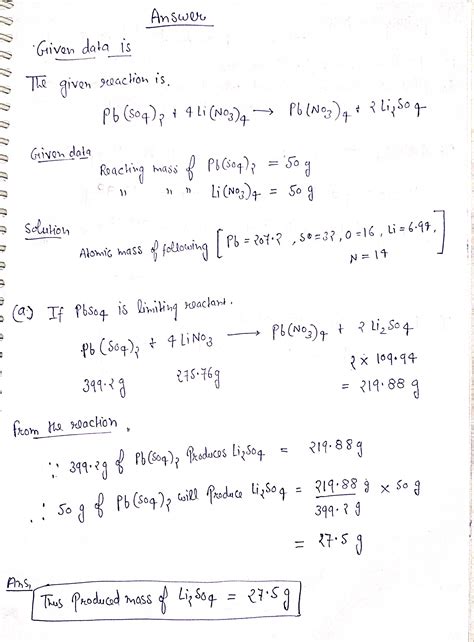 Answer
Given data is
The given reaction is.
Pb(SO4)2 + 4Li(NO3)4 → Pb(NO3)4 + 2Li2SO4
Given data
Reacting mass of Pb(SO4)2 = 50 g
" " " Li(NO3)4 = 50 g
Solution
Atomic mass of following [Pb = 207.2, S = 32, O = 16, Li = 6.94, N = 14]
(a) If PbSO4 is limiting reactant.
Pb(SO4)2 + 4LiNO3 → Pb(NO3)4 + 2Li2SO4
399.2g 275.76g 2 × 109.94
= 219.88 g
From the reaction,
∵ 399.2g of Pb(SO4)2 Produces Li2SO4 = 219.88g
∴ 50 g of Pb(SO4)2 will Produce Li2SO4 = 219.88 g / 399.2 g × 50 g
= 27.5 g
Ans,
Thus Produced mass of Li2SO4 = 27.5 g